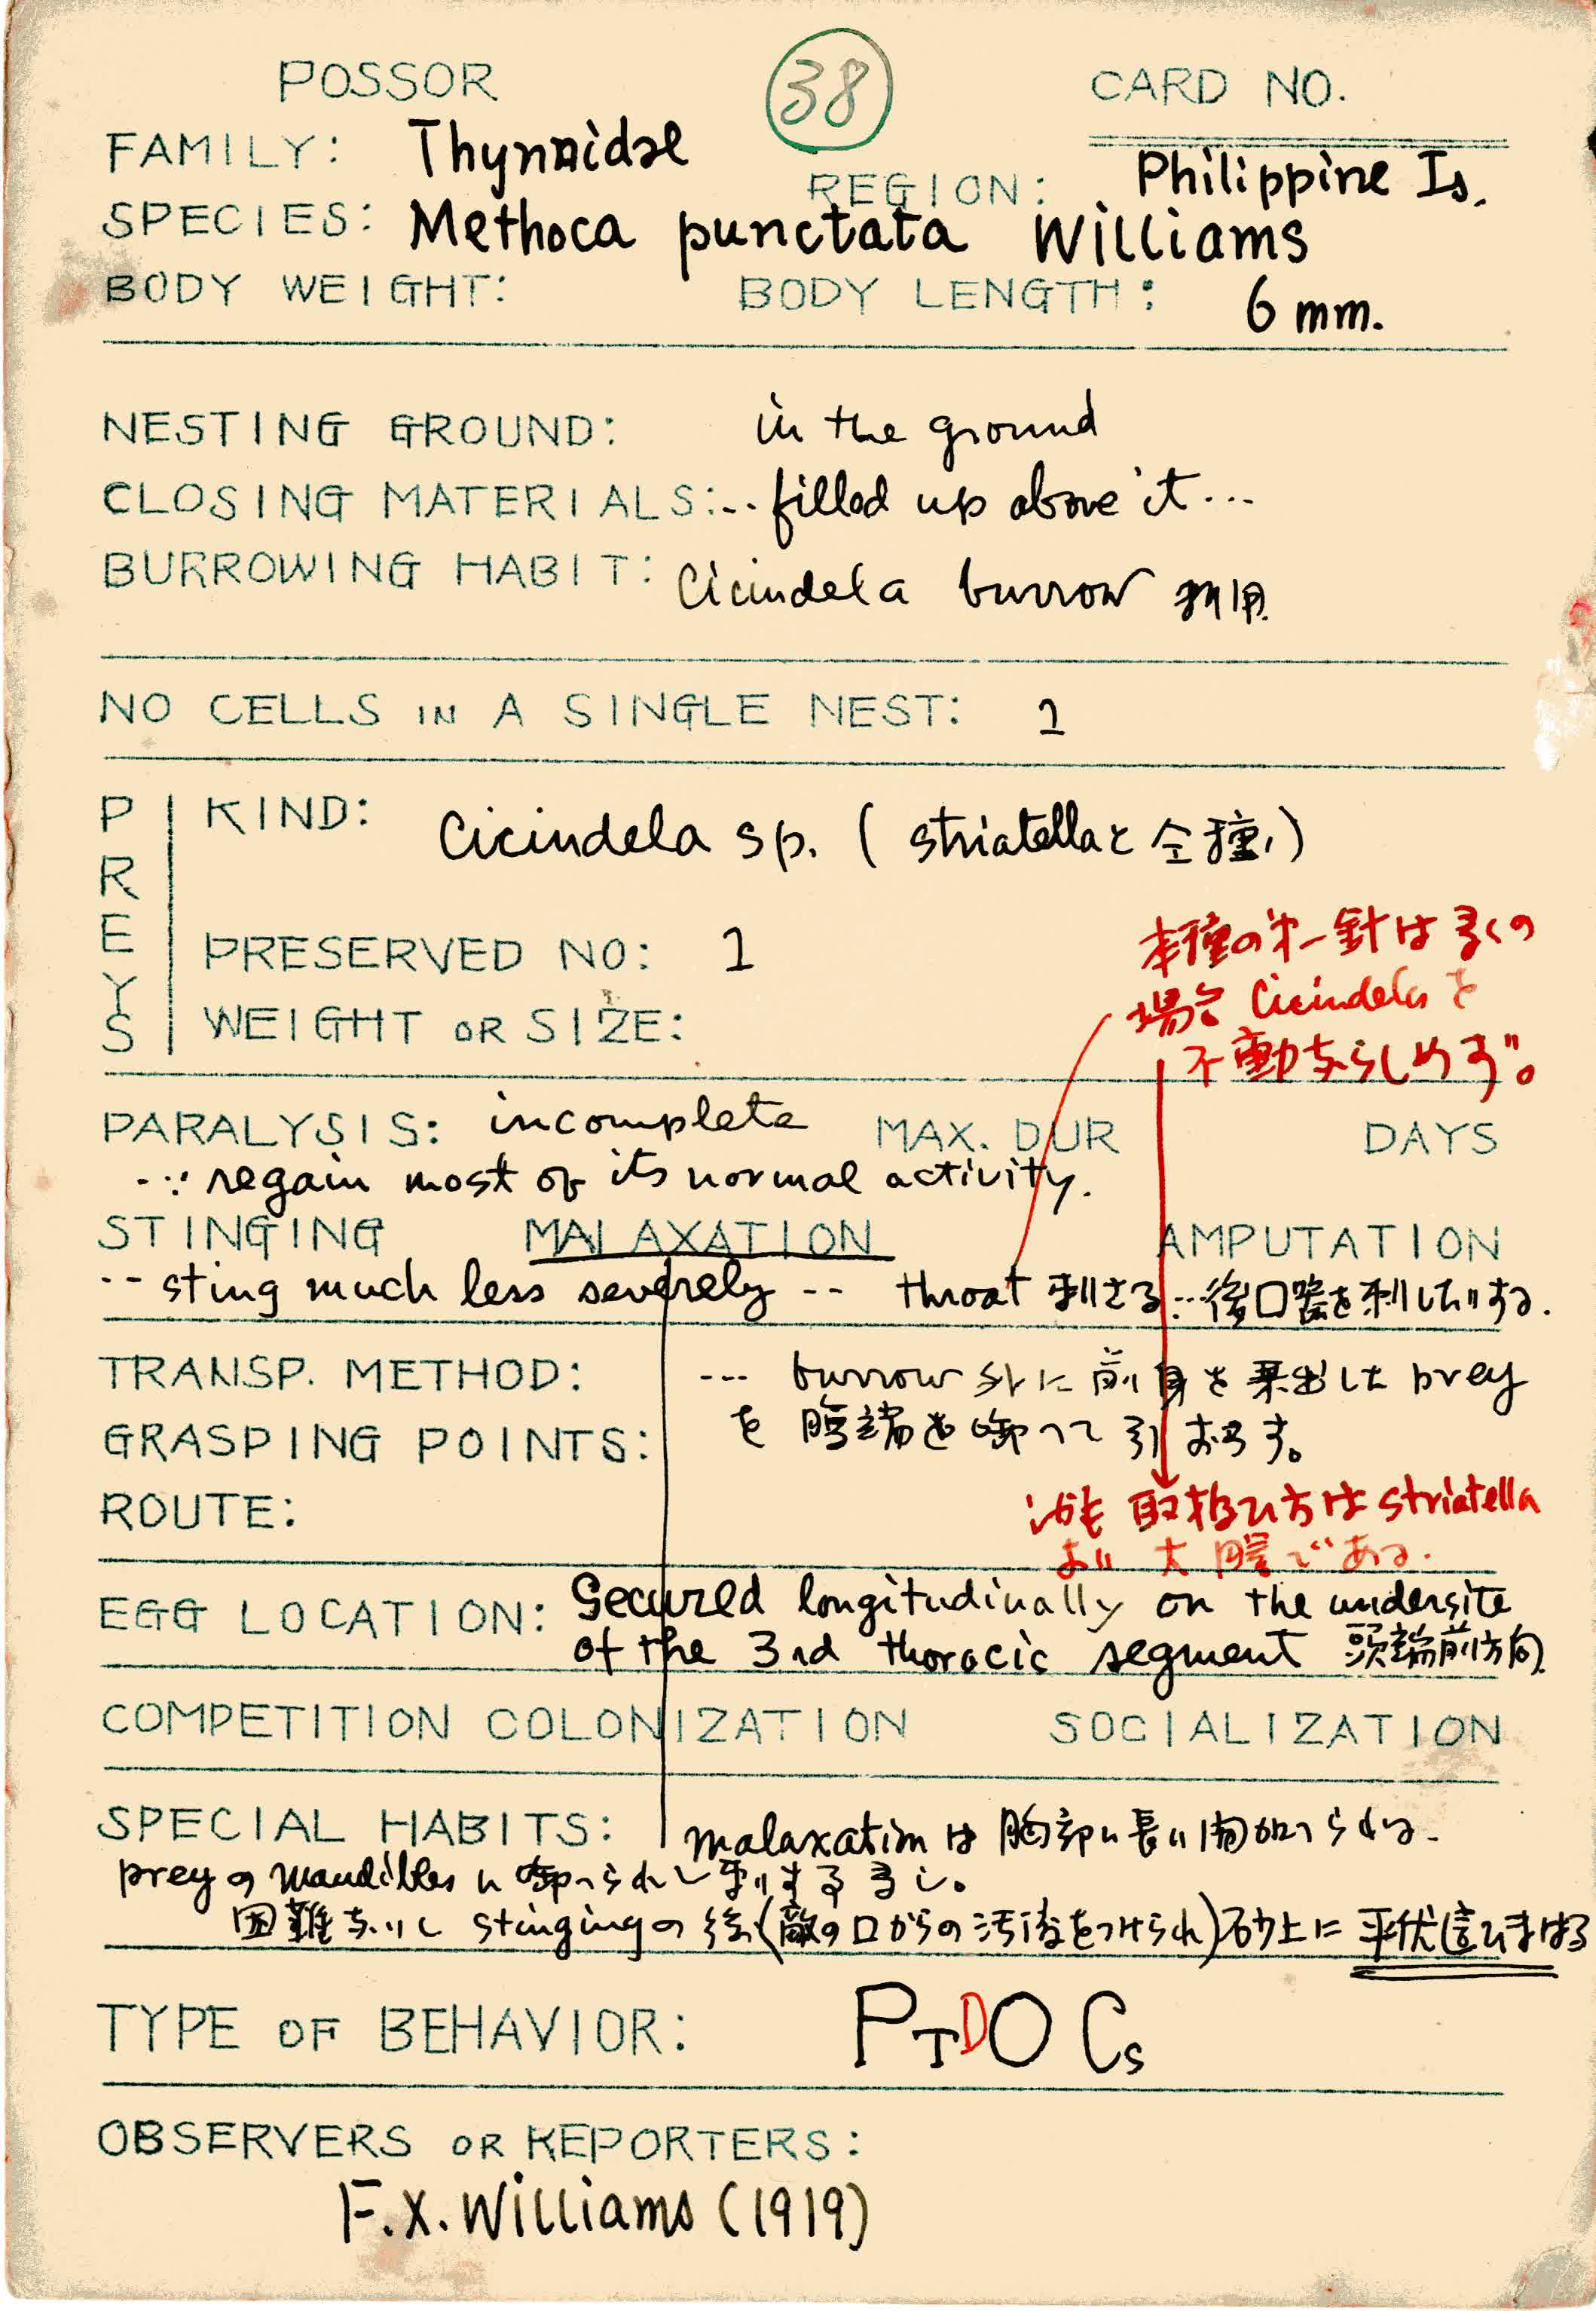 POSSOR
38
CARD NO.
FAMILY: Thynnidae
REGION: Philippine Is.
SPECIES: Methoca punctata Williams
BODY WEIGHT: BODY LENGTH: 6 mm.
NESTING GROUND: in the ground
CLOSING MATERIALS: -- filled up above it ---
BURROWING HABIT: Cicindela burrow 利用.
NO CELLS IN A SINGLE NEST: 1
PREYS
KIND: Cicindela sp. ( striatellaと仝種,)
PRESERVED NO: 1
WEIGHT OR SIZE:
本種の第一針は多くの
場合 Cicindelaを
不動ならしめず。
PARALYSIS: incomplete MAX. DUR DAYS
--: regain most of its normal activity.
STINGING MALAXATION AMPUTATION
-- sting much less severely -- throat 刺さる…後口器を刺したりする.
TRANSP. METHOD: --- burrow 外に前身を乗出した prey
GRASPING POINTS: を 腹端を啣へて引おろす。
ROUTE:
しかも取扱ひ方は striatella
より 大膽である.
EGG LOCATION: Secured longitudinally on the undersite
of the 3rd thoracic segment 頭端前方向
COMPETITION COLONIZATION SOCIALIZATION
SPECIAL HABITS: malaxation は 胸部に長い間加へらる.
prey の mandibles に啣へられて刺する多し。
困難ないし stinging の後(敵の口からの汚液をつけられ)砂上に平伏這ひまはる
TYPE OF BEHAVIOR: PTDO Cs
OBSERVERS OR REPORTERS:
F.X. Williams (1919)